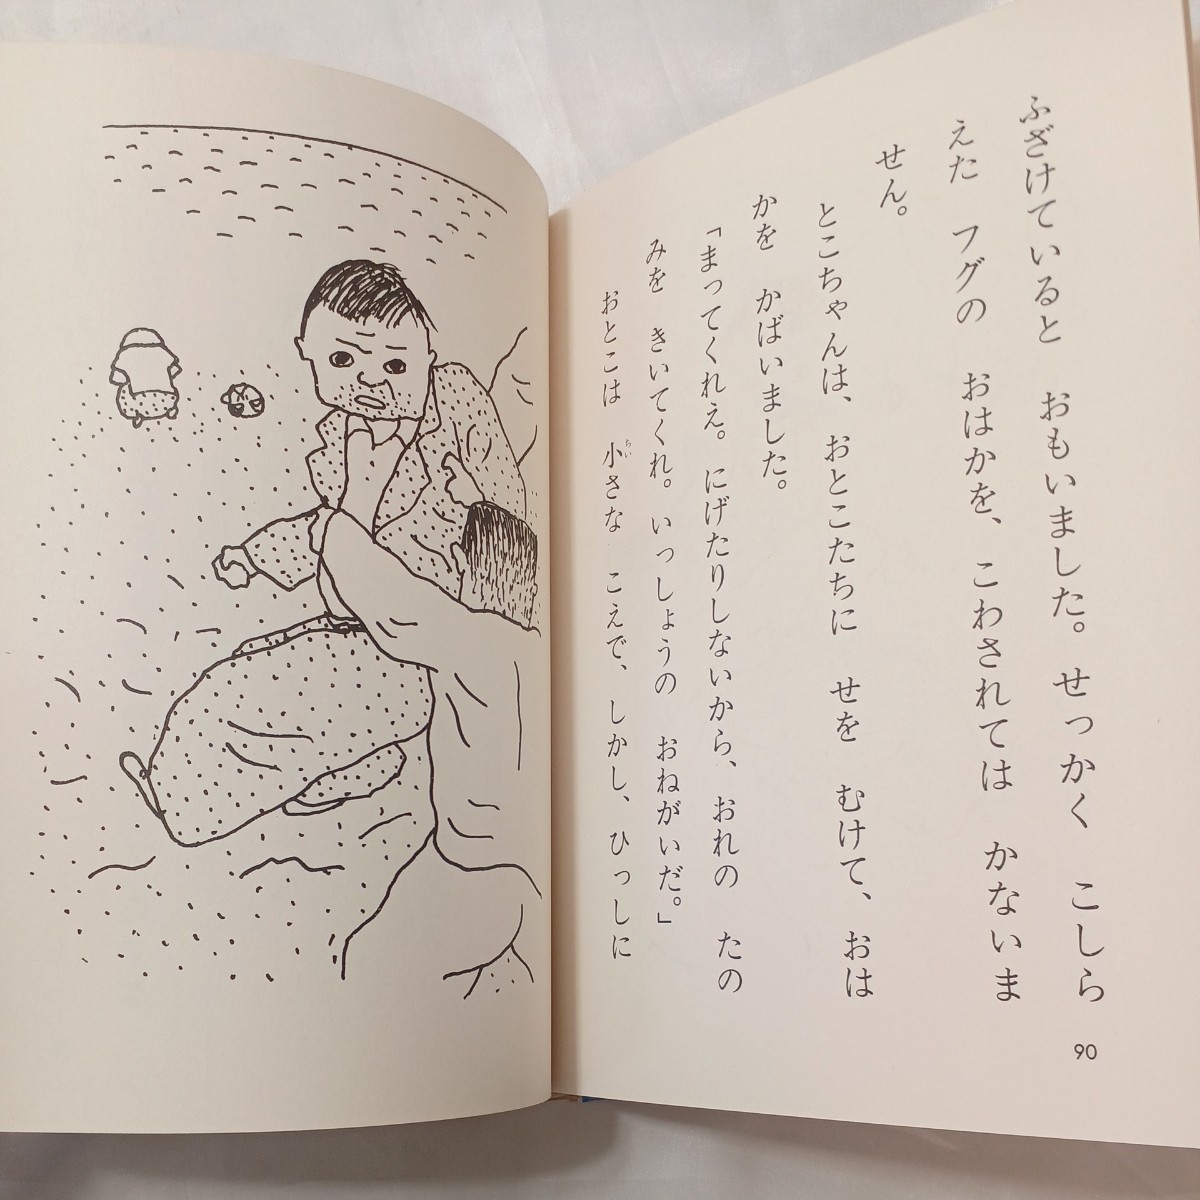 ふざけていると　おもいました。せっかく　こしら
えた　フグの　おはかを、こわされては　かないま
せん。
とこちゃんは、おとこたちに　せを　むけて、おは
かを　かばいました。
「まってくれえ。にげたりしないから、おれの　たの
みを　きいてくれ。いっしょうの　おねがいだ。」
おとこは　小さな　こえで、しかし、ひっしに
ちい
90